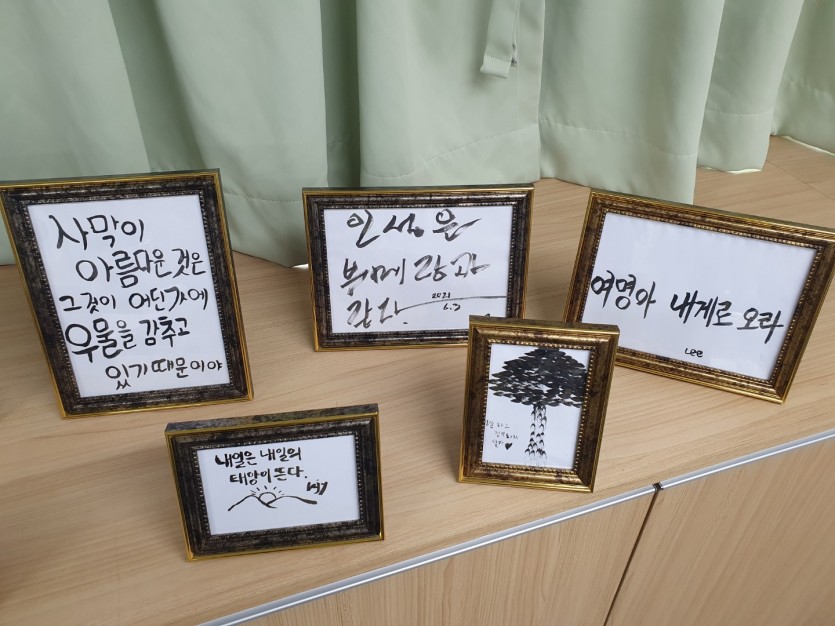 사막이
아름다운 것은
그것이 어딘가에
우물을 감추고
있기 때문이야
인생은
부메랑과
같다.
2021
6.2
여명아 내게로 오라
Lee
내일은 내일의
태양이 뜬다.